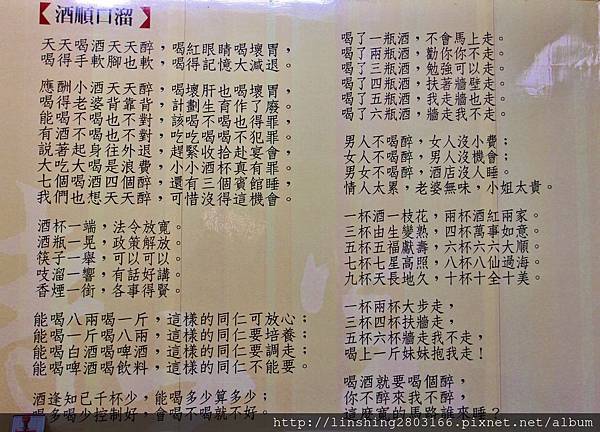 【酒順口溜】
天天喝酒天天醉，喝紅眼睛喝壞胃，
喝得手軟腳也軟，喝得記憶大減退。
應酬小酒天天醉，喝壞肝生喝壞胃，
喝得老婆背靠背，計劃生育作了廢。
能喝不喝也不對，該喝不喝也得罪，
有酒不喝也不對，吃吃喝喝不犯罪。
說著起身往外退，趕緊收拾赴宴會，
大吃大喝是浪費，小小酒杯真有罪。
七個喝酒四個醉，還有三個賓館睡，
我們也想天天醉，可惜沒得這機會。
酒杯一端，法令放寬。
酒瓶一晃，政策解放。
筷子一舉，可以可以。
吱溜一響，有話好講。
香煙一銜，各事得賢。
能喝八兩喝一斤，這樣的同仁可放心；
能喝一斤喝八兩，這樣的同仁要培養；
能喝白酒喝啤酒，這樣的同仁要調走；
能喝啤酒喝飲料，這樣的同仁不能要。
酒逢知己千杯少，能喝多少算多少；
喝多喝少控制好，會喝不喝就不好。
喝了一瓶酒，不會馬上走。
喝了兩瓶酒，勸你你不走。
喝了三瓶酒，勉強可以走。
喝了四瓶酒，扶著牆壁走。
喝了五瓶酒，我走牆也走。
喝了六瓶酒，牆走我不走。
男人不喝醉，女人沒小費；
女人不喝醉，男人沒機會；
男女不喝醉，酒店沒人睡。
情人太累，老婆無味，小姐太貴。
一杯酒一枝花，兩杯酒紅兩家。
三杯由生變熟，四杯萬事如意。
五杯五福獻壽，六杯六六大順。
七杯七星高照，八杯八仙過海。
九杯天長地久，十杯十全十美。
一杯兩杯大步走，
三杯四杯扶牆走，
五杯六杯牆走我不走，
喝上一斤妹妹抱我走！
喝酒就要喝個醉，
你不醉來我不醉，
這麼寬的馬路誰來睡？
http://linshing2803166.pixnet.net/album